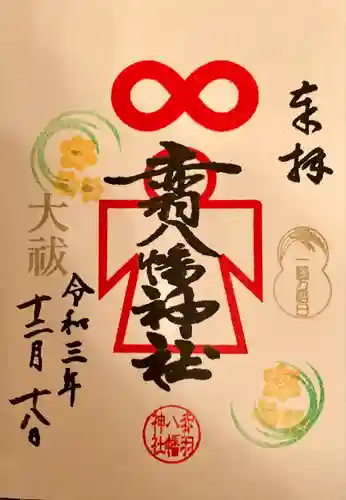 奉拝
赤羽八幡神社
大祓
令和三年
十二月十八日
赤羽
八幡
神社